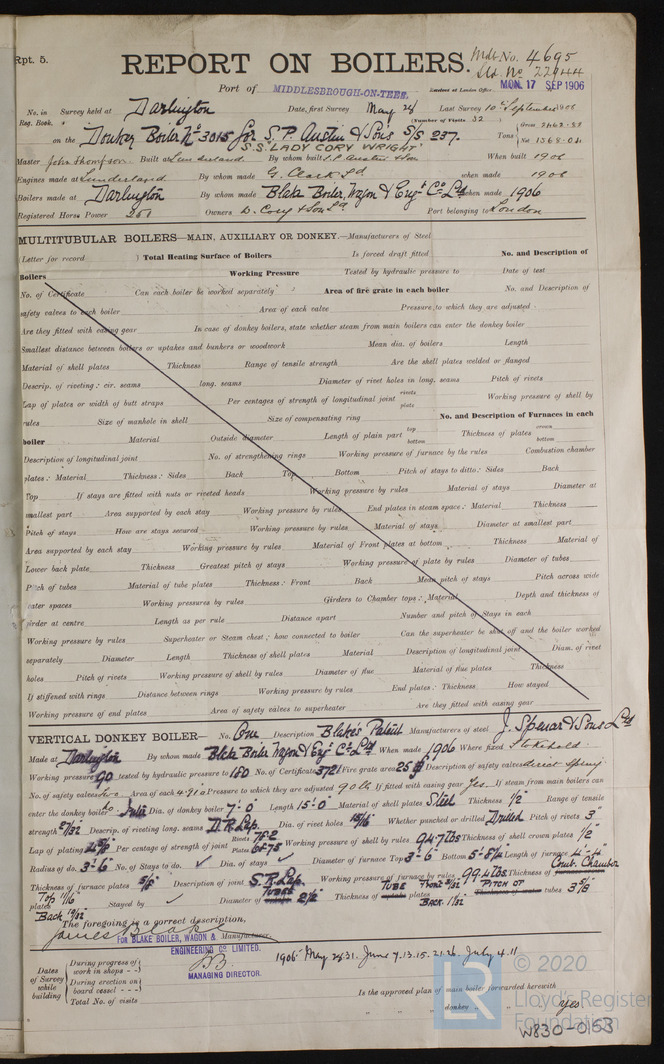 Rpt. 5.
REPORT ON BOILERS.
No. 4695
Port of MIDDLESBROUGH-ON-TEES. Received at London Office MON. 17 SEP 1906
No. in Survey held at Darlington Date, first Survey May 24 Last Survey 10th September 1906
Reg. Book. (Number of Visits 32)
on the Donkey Boiler No 3015 for S.P. Austin & Sons S/S 237. Tons Gross
S.S. "LADY CORY WRIGHT" Net
Master John Thompson Built at Sunderland By whom built S.P. Austin & Son When built 1906
Engines made at Sunderland By whom made G. Clark Ld when made 1906
Boilers made at Darlington By whom made Blake Boiler, Wagon & Engr Co Ld when made 1906
Registered Horse Power 251 Owners W. Cory & Son Ld Port belonging to London
MULTITUBULAR BOILERS—MAIN, AUXILIARY OR DONKEY.—Manufacturers of Steel
(Letter for record ) Total Heating Surface of Boilers Is forced draft fitted No. and Description of
Boilers Working Pressure Tested by hydraulic pressure to Date of test
No. of Certificate Can each boiler be worked separately Area of fire grate in each boiler No. and Description of
safety valves to each boiler Area of each valve Pressure to which they are adjusted
Are they fitted with easing gear In case of donkey boilers, state whether steam from main boilers can enter the donkey boiler
Smallest distance between boilers or uptakes and bunkers or woodwork Mean dia. of boilers Length
Material of shell plates Thickness Range of tensile strength Are the shell plates welded or flanged
Descrip. of riveting: cir. seams long. seams Diameter of rivet holes in long. seams Pitch of rivets
Lap of plates or width of butt straps Per centages of strength of longitudinal joint rivets plate Working pressure of shell by
rules Size of manhole in shell Size of compensating ring No. and Description of Furnaces in each
boiler Material Outside diameter Length of plain part top bottom Thickness of plates crown bottom
Description of longitudinal joint No. of strengthening rings Working pressure of furnace by the rules Combustion chamber
plates: Material Thickness: Sides Back Top Bottom Pitch of stays to ditto: Sides Back
Top If stays are fitted with nuts or riveted heads Working pressure by rules Material of stays Diameter at
smallest part Area supported by each stay Working pressure by rules End plates in steam space: Material Thickness
Pitch of stays How are stays secured Working pressure by rules Material of stays Diameter at smallest part
Area supported by each stay Working pressure by rules Material of Front plates at bottom Thickness Material of
Lower back plate Thickness Greatest pitch of stays Working pressure of plate by rules Diameter of tubes
Pitch of tubes Material of tube plates Thickness: Front Back Mean pitch of stays Pitch across wide
water spaces Working pressures by rules Girders to Chamber tops: Material Depth and thickness of
girder at centre Length as per rule Distance apart Number and pitch of Stays in each
Working pressure by rules Superheater or Steam chest; how connected to boiler Can the superheater be shut off and the boiler worked
separately Diameter Length Thickness of shell plates Material Description of longitudinal joint Diam. of rivet
holes Pitch of rivets Working pressure of shell by rules Diameter of flue Material of flue plates Thickness
If stiffened with rings Distance between rings Working pressure by rules End plates: Thickness How stayed
Working pressure of end plates Area of safety valves to superheater Are they fitted with easing gear
VERTICAL DONKEY BOILER— No. One Description Blake's Patent Manufacturers of steel J. Spencer & Sons Ltd
Made at Darlington By whom made Blake Boiler Wagon & Engr Co Ld When made 1906 Where fixed Stokehold
Working pressure 90 tested by hydraulic pressure to 180 No. of Certificate 3721 Fire grate area 25 Description of safety valves direct spring
No. of safety valves two Area of each 4.91 Pressure to which they are adjusted 90 lb If fitted with easing gear Yes If steam from main boilers can
enter the donkey boiler no Dia. of donkey boiler 7'-0" Length 15'-0" Material of shell plates Steel Thickness 1/2" Range of tensile
strength 27/32 Descrip. of riveting long. seams D.R.Lap. Dia. of rivet holes 15/16" Whether punched or drilled Drilled Pitch of rivets 3"
Lap of plating Per centage of strength of joint Rivets 78.2 Plates 68.75 Working pressure of shell by rules 94.7 lbs Thickness of shell crown plates 1/2"
Radius of do. 3'-6" No. of Stays to do. ✓ Dia. of stays ✓ Diameter of furnace Top 3'-6" Bottom 5'-8 1/4" Length of furnace 4'-4"
Comb. Chamber
Thickness of furnace plates 5/8" Description of joint S.R.Lap. Working pressure of furnace by rules 99.4 lbs Thickness of
Top 11/16 Stayed by ✓ Diameter of TUBES 2 1/2" Thickness of TUBE plates FRONT BACK 11/32 PITCH OF tubes 3 5/8"
Back 19/32
The foregoing is a correct description,
James Blake Manufacturer.
FOR BLAKE BOILER, WAGON &
ENGINEERING CO. LIMITED.
MANAGING DIRECTOR.
Dates of Survey while building
During progress of work in shops - - 1906 May 24.31. June 7.13.15.21.26. July 4.11.
During erection on board vessel - - -
Total No. of visits
Is the approved plan of main boiler forwarded herewith
" " " donkey " " " yes
© 2020
Lloyd's Register
Foundation
W830-0153